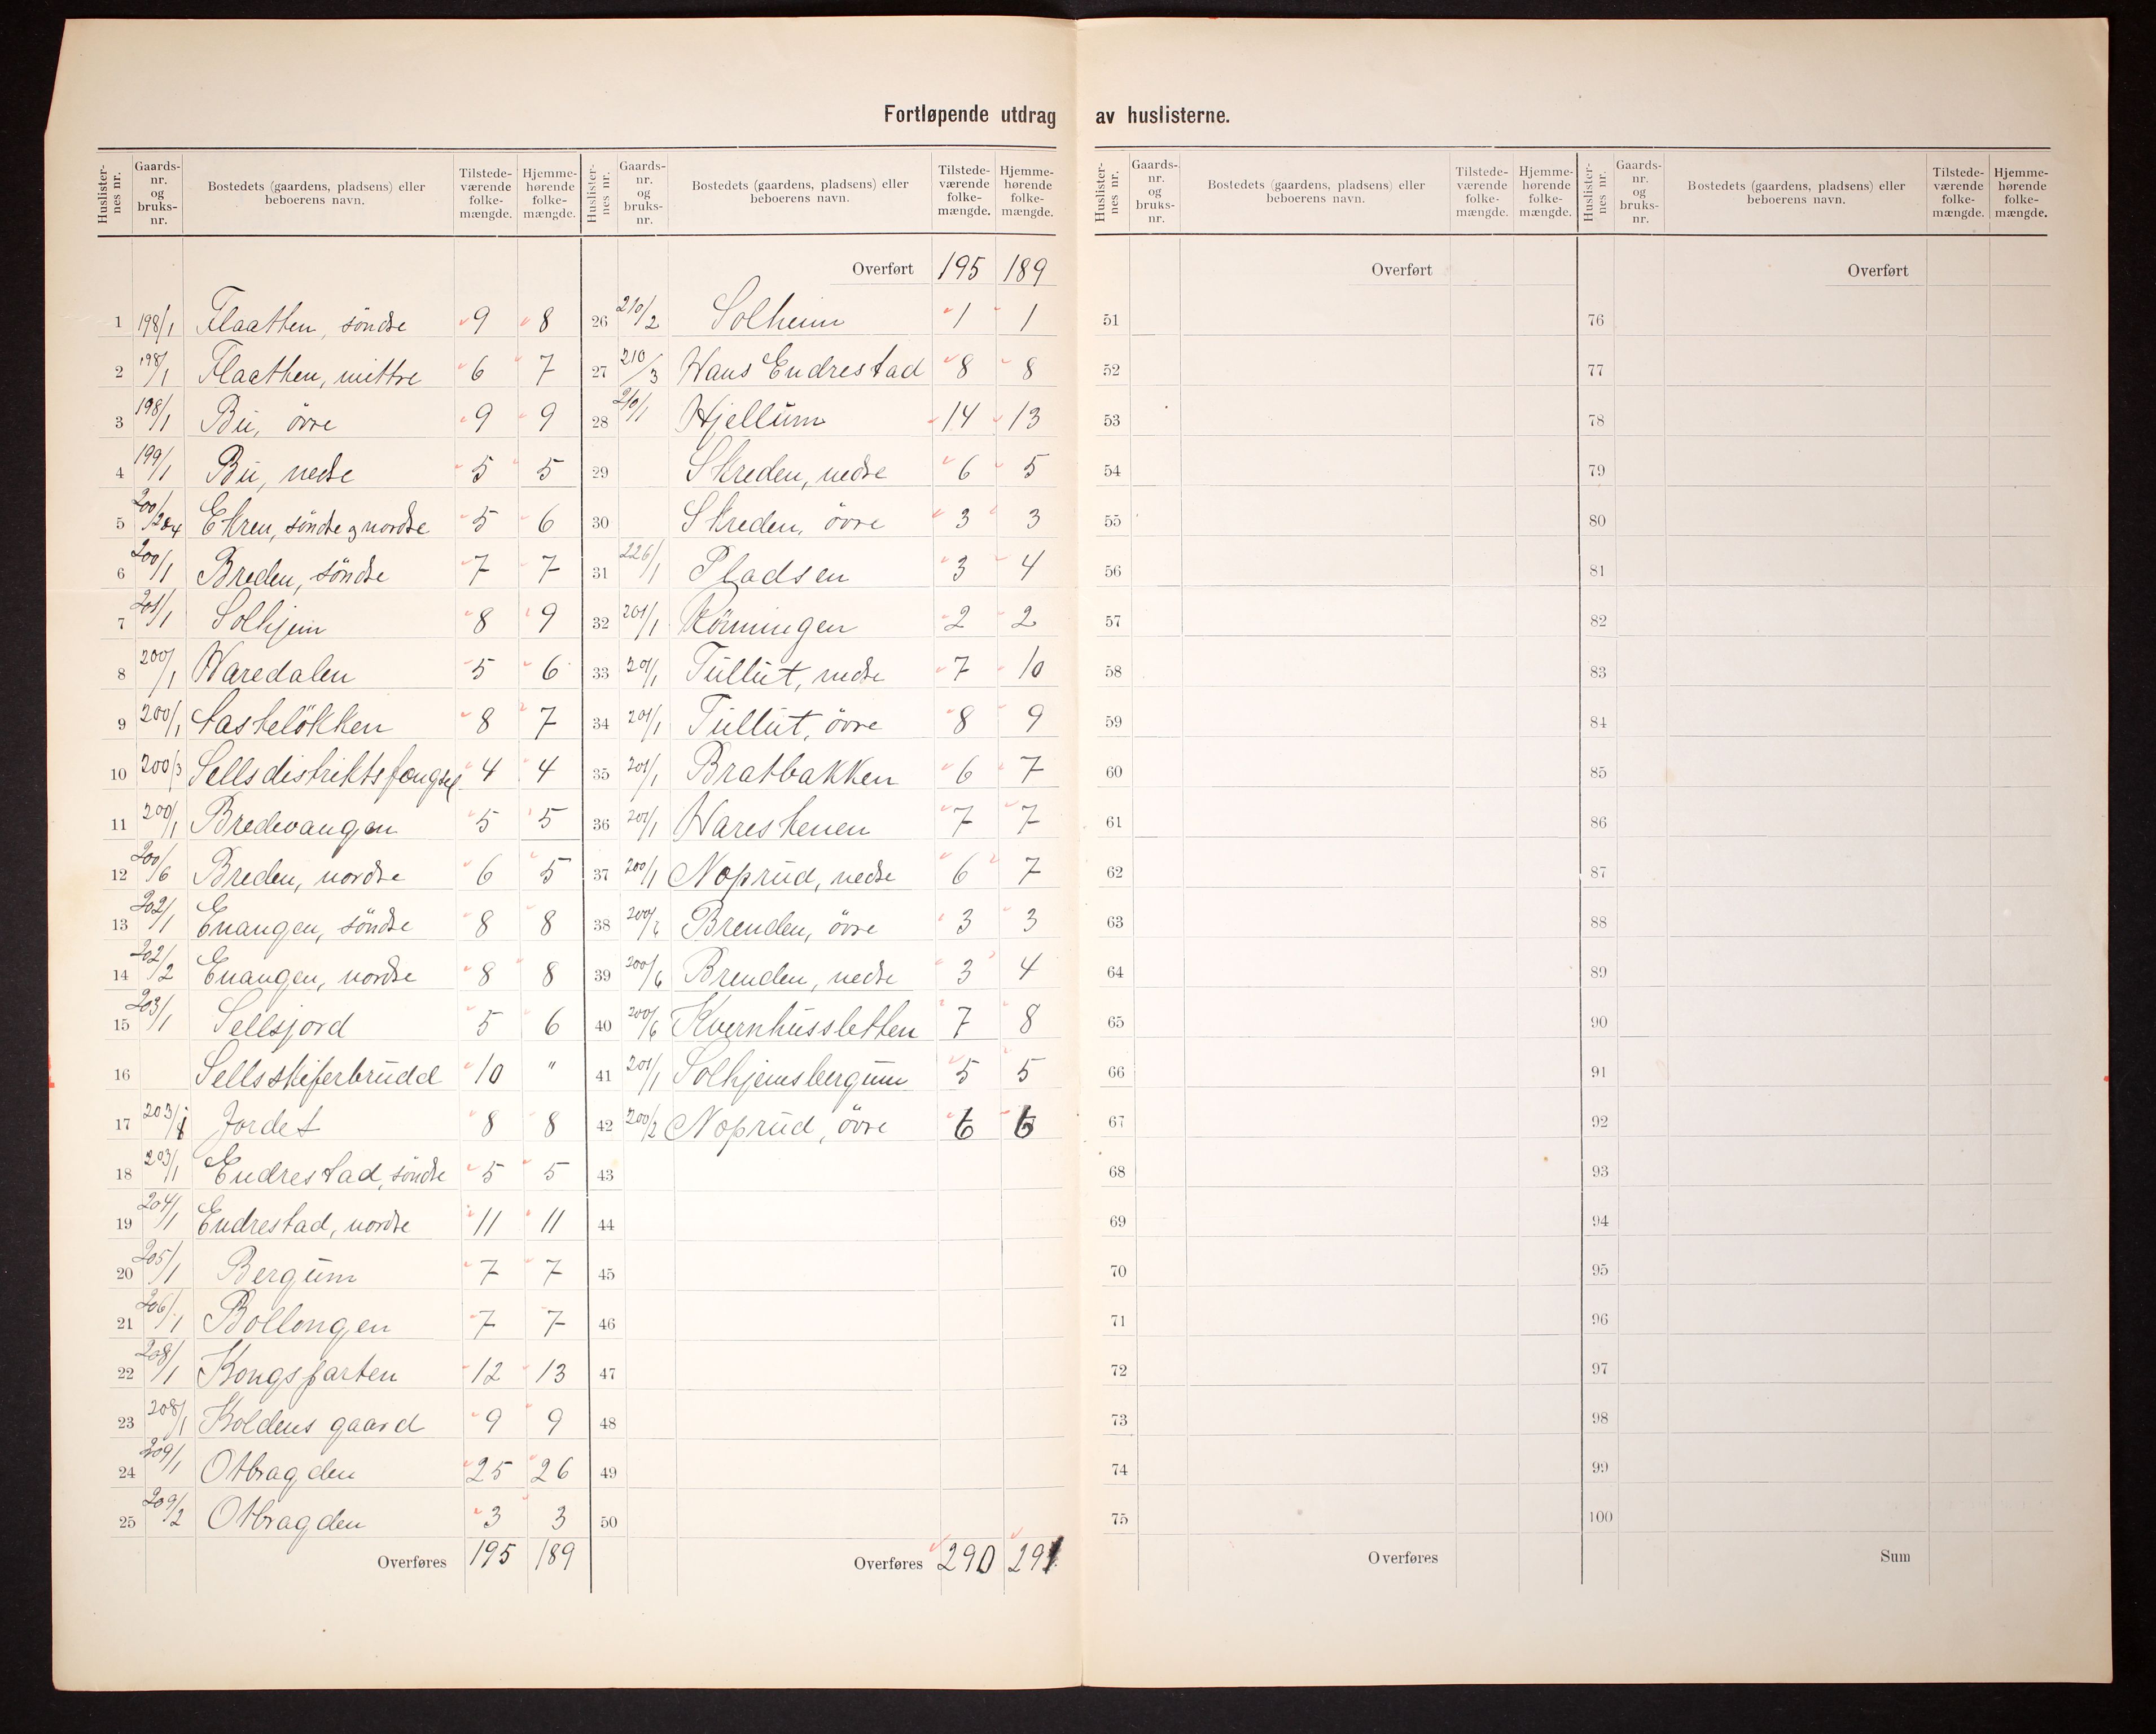 Fortløpende utdrag av huslisterne.
Huslisternes nr. Gaards-nr. og bruks-nr. Bostedets (gaardens, pladsens) eller beboerens navn. Tilstedeværende folke-mængde. Hjemmehørende folke-mængde.
1 198/1 Flaatten, söndre 9 8
2 198/1 Flaatten, mittre 6 7
3 198/1 Bu, övre 9 9
4 199/1 Bu, nedre 5 5
5 200/2o4 Ekren, söndre g nordre 5 6
6 200/1 Breden, söndre 7 7
7 201/1 Solhjem 8 9
8 200/1 Haredalen 5 6
9 200/1 Laskelökken 8 7
10 200/3 Sells distriktsfængsel 4 4
11 200/1 Bredevangen 5 5
12 200/6 Breden, nordre 6 5
13 202/1 Enangen, söndre 8 8
14 202/2 Enangen, nordre 8 8
15 203/1 Sellsjord 5 6
16 Sells skiferbrudd 10 "
17 203/ Jordet 8 8
18 203/1 Endrestad, söndre 5 5
19 204/1 Endrestad, nordre 11 11
20 205/1 Bergum 7 7
21 206/1 Bollongen 7 7
22 208/1 Kongsparten 12 13
23 208/1 Koldens gaard 9 9
24 209/1 Ottbragden 25 26
25 209/2 Ottbragden 3 3
Overføres 195 189
Huslisternes nr. Gaards-nr. og bruks-nr. Bostedets (gaardens, pladsens) eller beboerens navn. Tilstedeværende folke-mængde. Hjemmehørende folke-mængde.
Overført 195 189
26 210/2 Solheim 1 1
27 210/3 Hans Endrestad 8 8
28 210/1 Hjellum 14 13
29 Skreden, nedre 6 5
30 Skreden, övre 3 3
31 226/1 Pladsen 3 4
32 201/1 Rönningen 2 2
33 201/1 Tullut, nedre 7 10
34 201/1 Tullut, övre 8 9
35 201/1 Bratbakken 6 7
36 201/1 Harestenen 7 7
37 200/1 Noprud, nedre 6 7
38 200/6 Brenden, övre 3 3
39 200/6 Brenden, nedre 3 4
40 200/6 Kvernhussletten 7 8
41 201/1 Solhjemsbergum 5 5
42 200/2 Noprud, övre 6 6
43
44
45
46
47
48
49
50
Overføres 290 291
Huslisternes nr. Gaards-nr. og bruks-nr. Bostedets (gaardens, pladsens) eller beboerens navn. Tilstedeværende folke-mængde. Hjemmehørende folke-mængde.
Overført
51
52
53
54
55
56
57
58
59
60
61
62
63
64
65
66
67
68
69
70
71
72
73
74
75
Overføres
Huslisternes nr. Gaards-nr. og bruks-nr. Bostedets (gaardens, pladsens) eller beboerens navn. Tilstedeværende folke-mængde. Hjemmehørende folke-mængde.
Overført
76
77
78
79
80
81
82
83
84
85
86
87
88
89
90
91
92
93
94
95
96
97
98
99
100
Sum